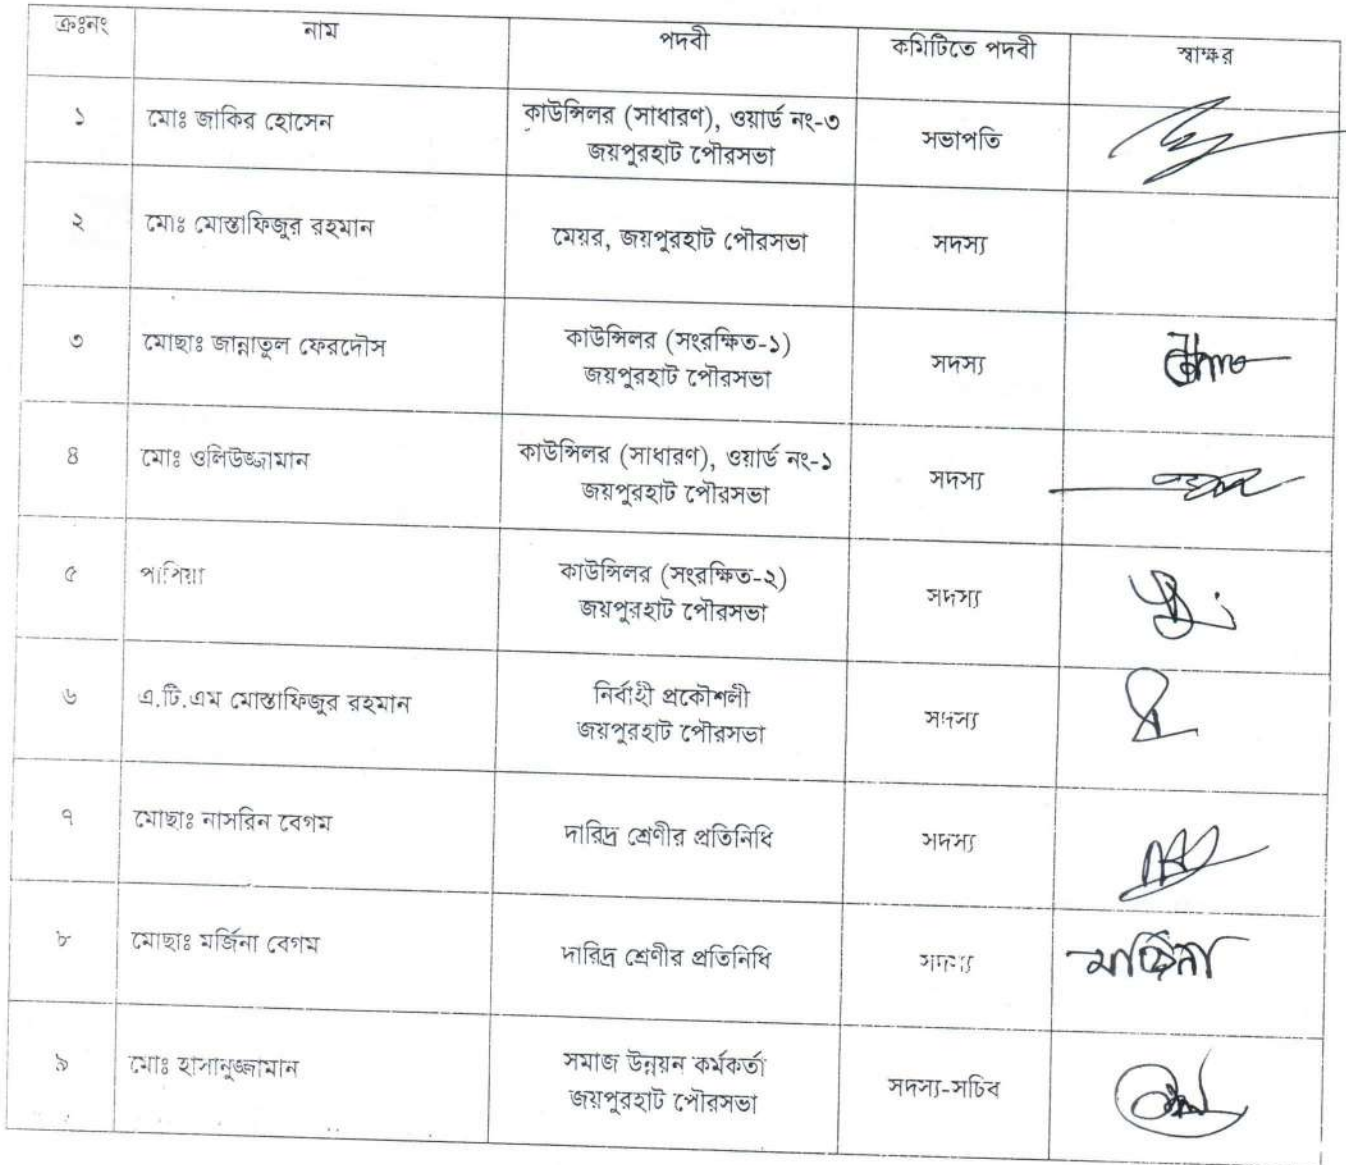 ক্রঃনং নাম পদবী কমিটিতে পদবী স্বাক্ষর
১ মোঃ জাকির হোসেন কাউন্সিলর (সাধারণ), ওয়ার্ড নং-৩
জয়পুরহাট পৌরসভা সভাপতি
২ মোঃ মোস্তাফিজুর রহমান মেয়র, জয়পুরহাট পৌরসভা সদস্য
৩ মোছাঃ জান্নাতুল ফেরদৌস কাউন্সিলর (সংরক্ষিত-১)
জয়পুরহাট পৌরসভা সদস্য
৪ মোঃ ওলিউজ্জামান কাউন্সিলর (সাধারণ), ওয়ার্ড নং-১
জয়পুরহাট পৌরসভা সদস্য
৫ পাপিয়া কাউন্সিলর (সংরক্ষিত-২)
জয়পুরহাট পৌরসভা সদস্য
৬ এ.টি.এম মোস্তাফিজুর রহমান নির্বাহী প্রকৌশলী
জয়পুরহাট পৌরসভা সদস্য
৭ মোছাঃ নাসরিন বেগম দারিদ্র শ্রেণীর প্রতিনিধি সদস্য
৮ মোছাঃ মর্জিনা বেগম দারিদ্র শ্রেণীর প্রতিনিধি সদস্য মর্জিনা
৯ মোঃ হাসানুজ্জামান সমাজ উন্নয়ন কর্মকর্তা
জয়পুরহাট পৌরসভা সদস্য-সচিব